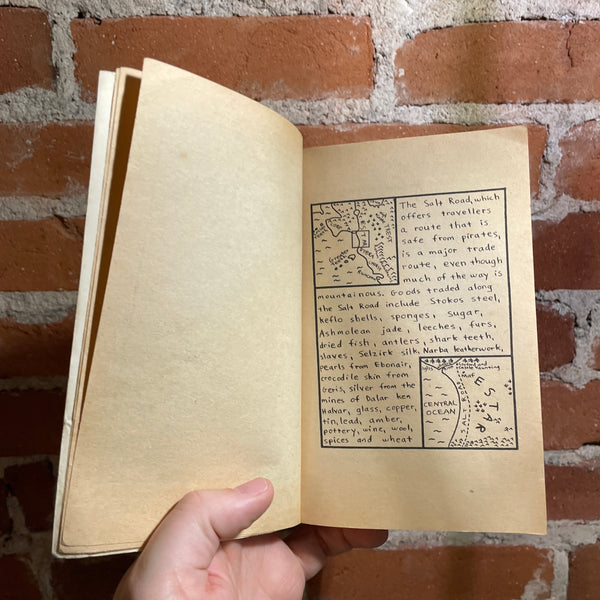 The Salt Road, which
offers travellers
a route that is
safe from pirates,
is a major trade
route, even though
much of the way is
mountainous. Goods traded along
the Salt Road include Stokos steel,
keflo shells, sponges, sugar,
Ashmolean jade, leeches, furs,
dried fish, antlers, shark teeth,
slaves, Selzirk silk, Narba featherwork,
pearls from Ebonair,
crocodile skin from
Geris, silver from the
mines of Dalar ken
Halvar, glass, copper,
tin, lead, amber,
pottery, wine, wool,
spices and wheat
CENTRAL
OCEAN
SALT ROAD
ESTAR